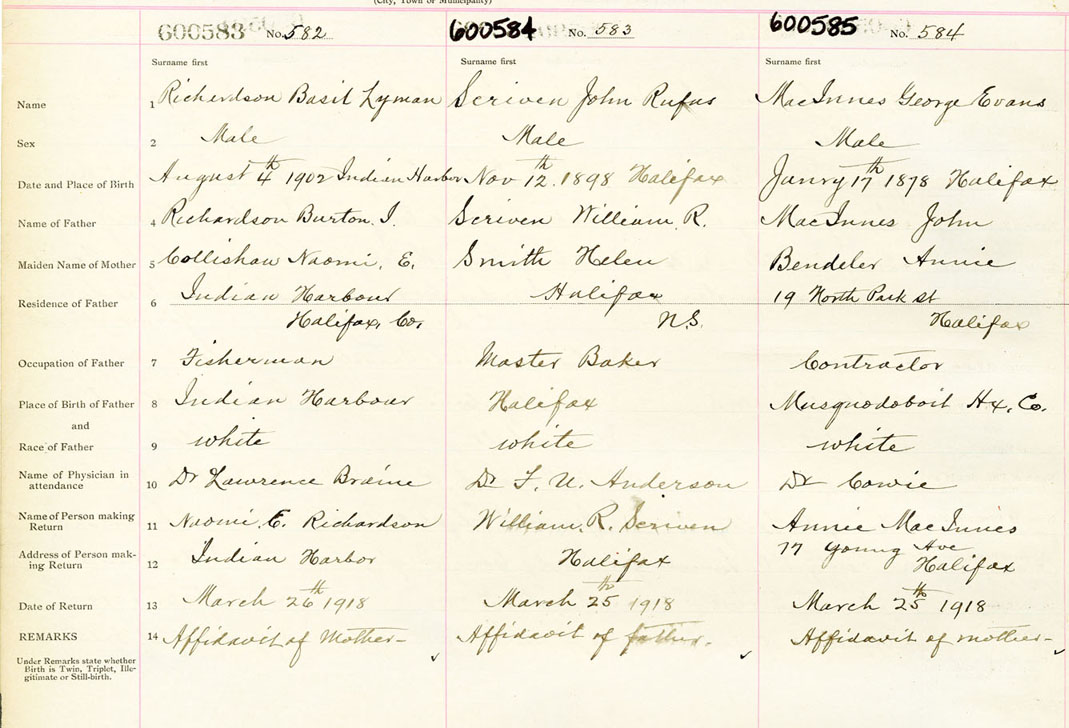 (City, Town or Municipality)
600583 No. 582 600584 No. 583 600585 No. 584
Surname first Surname first Surname first
Name 1 Richardson Basil Lyman Scriven John Rufus MacInnes George Evans
Sex 2 Male Male Male
Date and Place of Birth 3 August 4th 1902 Indian Harbor Nov 12th. 1898 Halifax Janry 17th 1878 Halifax
Name of Father 4 Richardson Burton. I. Scriven William. R. MacInnes John
Maiden Name of Mother 5 Collishaw Naomi, E. Smith Helen Bendeler Annie
Residence of Father 6 Indian Harbour Halifax 19 North Park St
Halifax, Co, N.S. Halifax
Occupation of Father 7 Fisherman Master Baker Contractor
Place of Birth of Father 8 Indian Harbour Halifax Musquodoboit Hx. Co.
and
Race of Father 9 white white white
Name of Physician in
attendance 10 Dr Lawrence Braine Dr F. U. Anderson Dr Cowie
Name of Person making
Return 11 Naomi. E. Richardson William. R. Scriven Annie MacInnes
Address of Person mak-
ing Return 12 Indian Harbor Halifax 77 Young Ave
Halifax
Date of Return 13 March 26th 1918 March 25th 1918 March 25th 1918
REMARKS 14 Affidavit of Mother- Affidavit of father. Affidavit of mother-
Under Remarks state whether
Birth is Twin, Triplet, Ille-
gitimate or Still-birth.